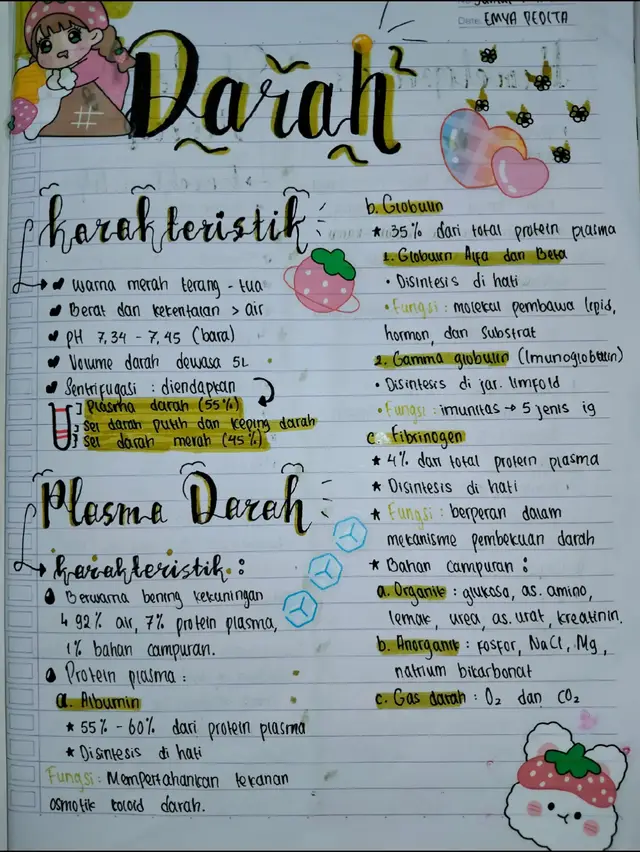 Date: EMYA PEDITA
Darah²
karakteristik
warna merah terang - tua
Berat dan kekentalan > air
pH 7,34 - 7,45 (bara)
Volume darah dewasa 5L
Sentrifugasi : diendapkan
Plasma darah (55%)
Sel darah putih dan keping darah
Sel darah merah (45%)
Plasma Darah
karakteristik :
Berwarna bening kekuningan
92% air, 7% protein plasma,
1% bahan campuran.
Protein plasma :
a. Albumin
* 55% - 60% dari protein plasma
* Disintesis di hati
Fungsi : Mempertahankan tekanan
osmotik koloid darah.
b. Globulin
* 35% dari total protein plasma
1. Globulin Alfa dan Beta
• Disintesis di hati
• Fungsi : molekul pembawa lipid,
hormon, dan substrat
2. Gamma globulin (Imunoglobulin)
• Disintesis di jar. limfoid
• Fungsi : imunitas → 5 jenis ig
c. Fibrinogen
* 4% dari total protein plasma
* Disintesis di hati
* Fungsi : berperan dalam
mekanisme pembekuan darah
* Bahan campuran :
a. Organik : glukosa, as. amino,
lemak, urea, as. urat, kreatinin.
b. Anorganik : fosfor, NaCl, Mg,
natrium bikarbonat
c. Gas darah : O₂ dan CO₂